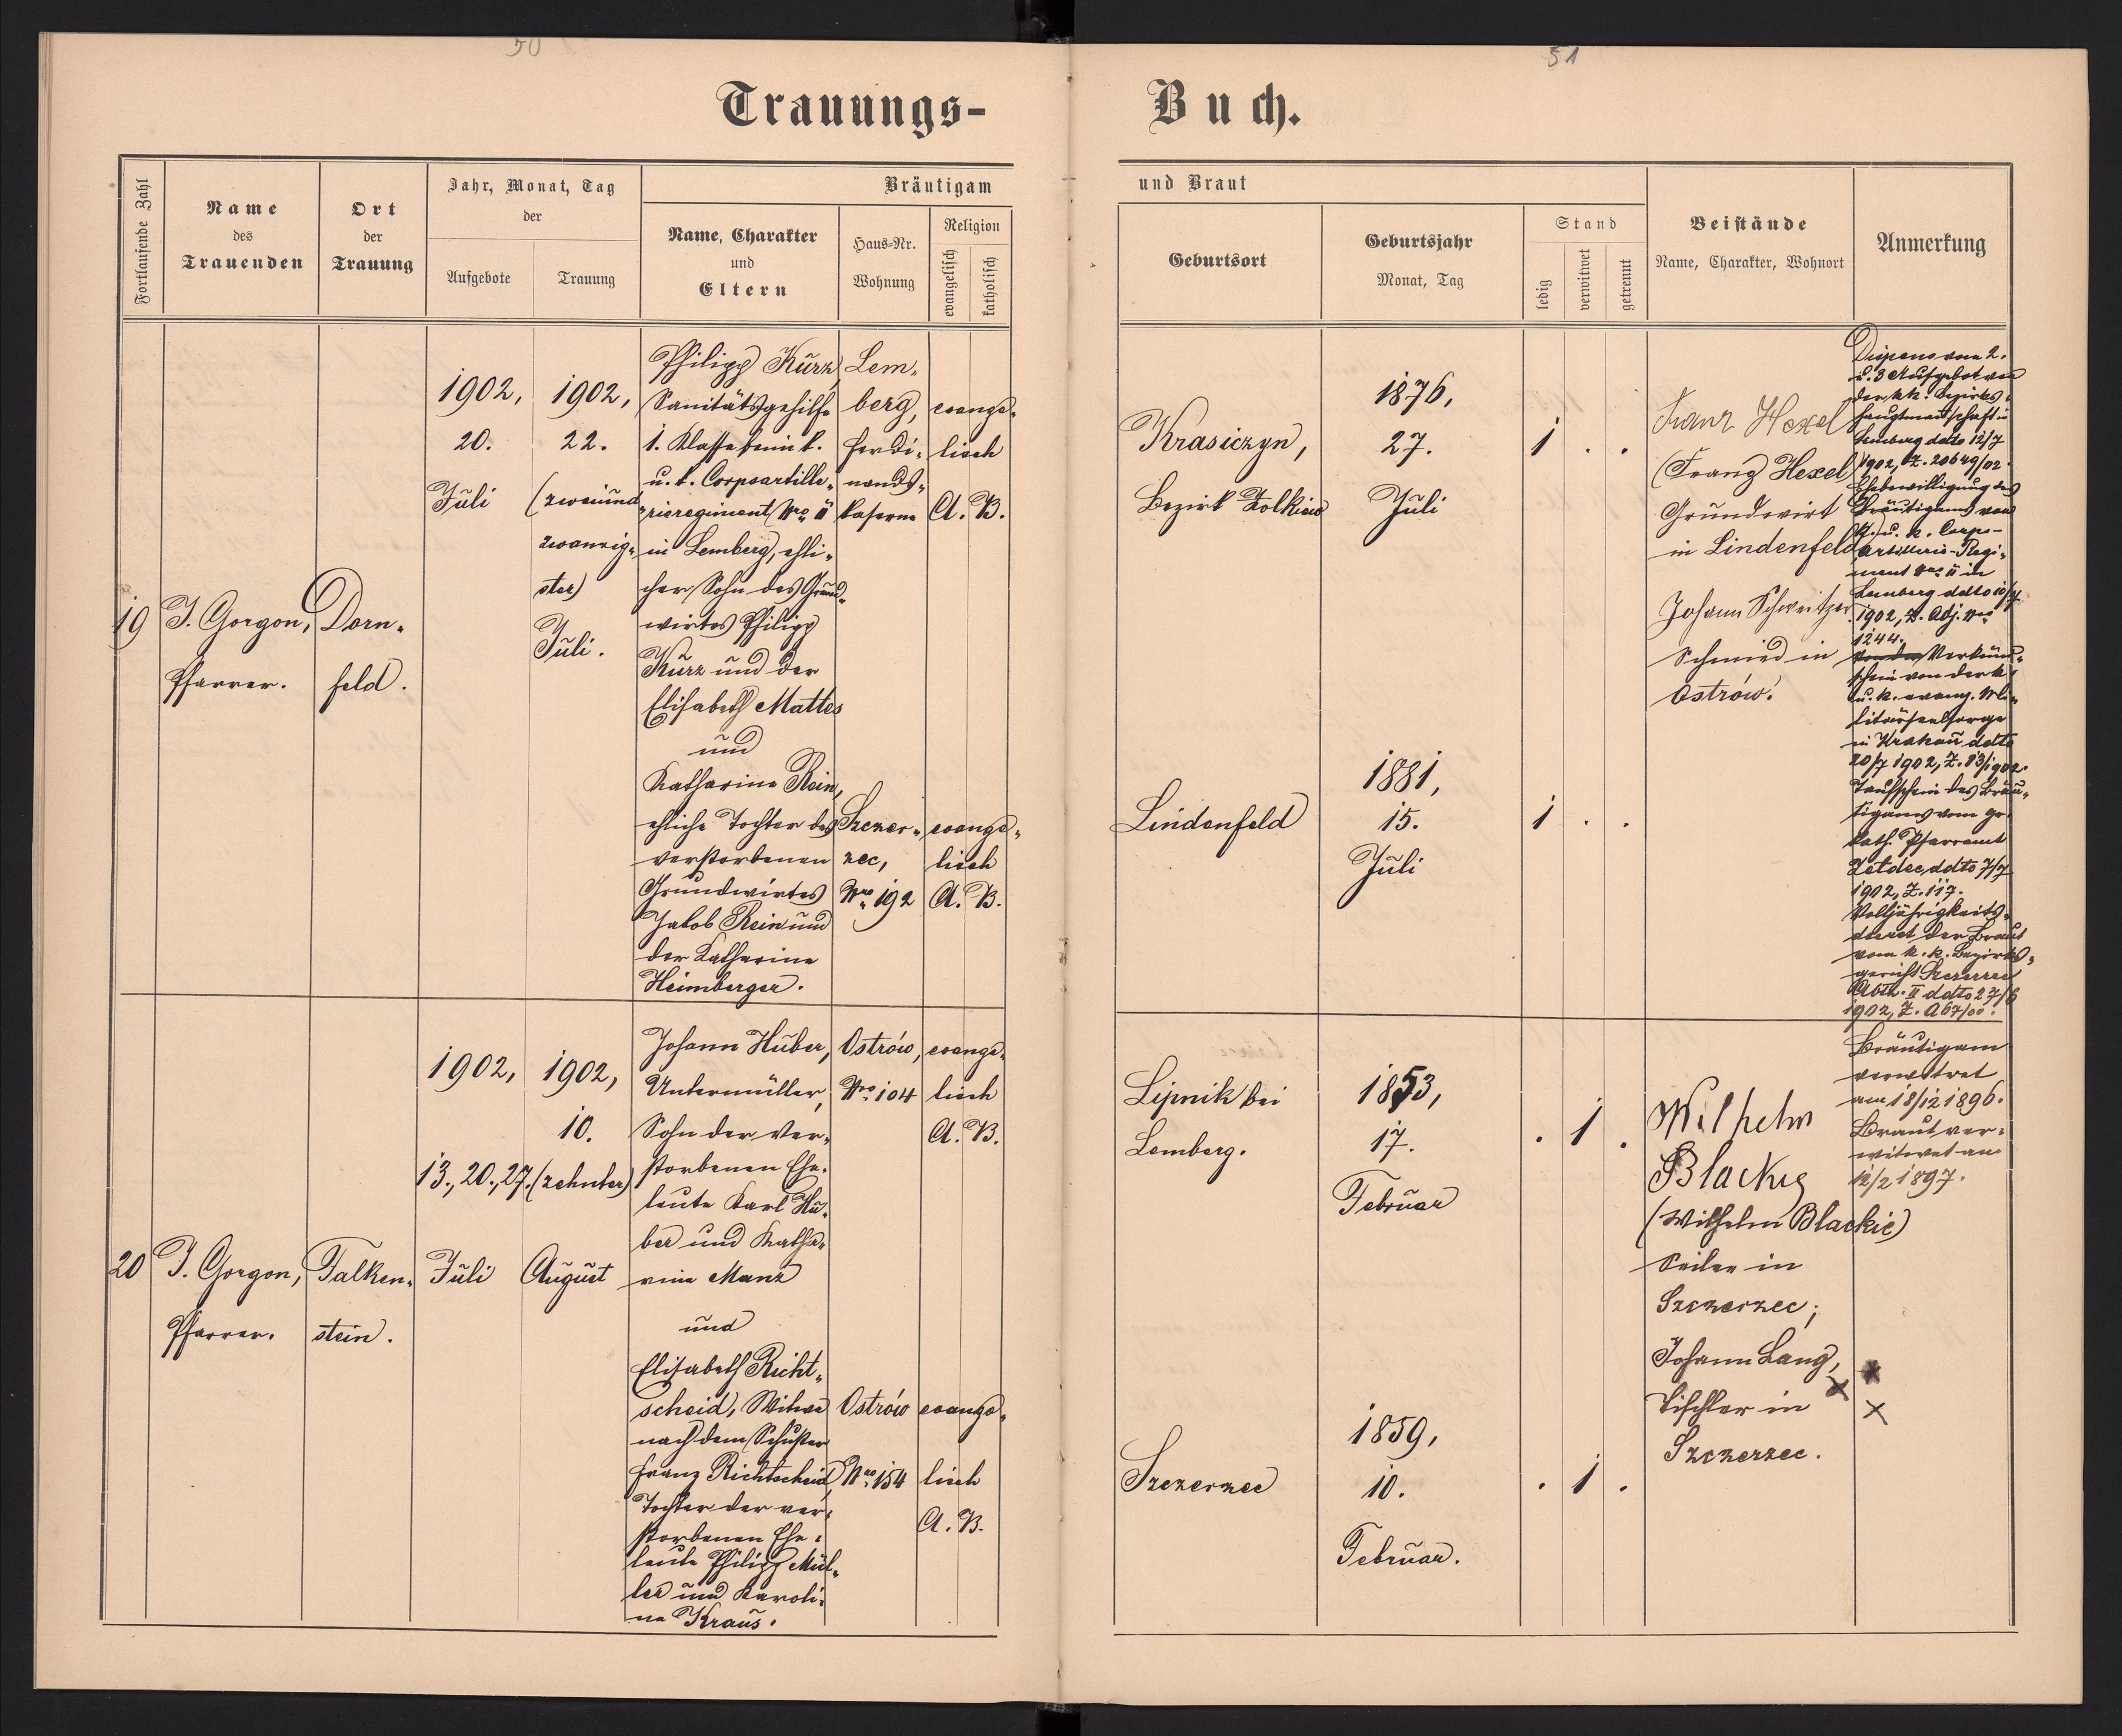 50
51
Trauungs-
Buch.
Fortlaufende Zahl
Name
des
Trauenden
Ort
der
Trauung
Jahr, Monat, Tag
der
Aufgebote
Trauung
Bräutigam
Name, Charakter
und
Eltern
Haus-Nr.
Wohnung
Religion
evangelisch
katholisch
und Braut
Geburtsort
Geburtsjahr
Monat, Tag
Stand
ledig
verwitwet
getrennt
Beistände
Name, Charakter, Wohnort
Anmerkung
19
J. Gorgon,
Pfarrer.
Dorn-
feld.
1902,
20.
Juli
1902,
22.
(zweiund-
zwanzig-
ster)
Juli.
Philipp Kurz,
Sanitätsgehilfe
1. Klasse beim k.
u. k. Corpsartille-
rieregiment Nro. 11
in Lemberg, ehli-
cher Sohn des Grund-
wirtes Philipp
Kurz und der
Elisabeth Mattes
und
Katharina Rein,
ehliche Tochter des
verstorbenen
Grundwirtes
Jakob Rein und
der Katharina
Heimberger.
Lem-
berg,
Ferdi-
nands-
kaserne
Szczer-
zec,
Nro. 192
evange-
lisch
A. B.
evange-
lisch
A. B.
Krasiczyn,
Bezirk Zolkiew
Lindenfeld
1876,
27.
Juli
1881,
15.
Juli
1 . .
1 . .
Franz Hexel
(Franz Hexel)
Grundwirt
in Lindenfeld
Johann Schweitzer
Schmied in
Ostrów.
Dispens vom 2.
u. 3 Aufgebot von
der kk. Bezirks-
hauptmannschaft in
Lemberg ddto 12/7
1902, Z. 20649/02.
Ehebewilligung des
Bräutigams vom
k. u. k. Corps-
Artillerie-Regi-
ment Nro. 11 in
Lemberg ddto 10/7
1902, Z. Adj. Nro
1244.
Verkünd-
schein von der k.
u. k. evang. Mi-
litärseelsorge
in Krakau ddto
20/7 1902, Z. 83/1902.
Taufschein des Bräu-
tigams vom gr.
kath. Pfarramt
ddto 7/7
1902, Z. 117.
Volljährigkeits-
decret der Braut
vom k. k. Bezirks-
gericht Szczerzec
Abth. II ddto 27/6
1902, Z. A 67/00.
20
J. Gorgon,
Pfarrer.
Falken-
stein.
1902,
13., 20., 27.
Juli
1902,
10.
(zehnter)
August
Johann Huber,
Untermüller,
Sohn der ver-
storbenen Ehe-
leute Karl Hu-
ber und Katha-
rina Manz
und
Elisabeth Richt-
scheid, Witwe
nach dem Schuster
Franz Richtscheid,
Tochter der ver-
storbenen Ehe-
leute Philipp Mül-
ler und Karoli-
na Kraus.
Ostrów,
Nro. 104
Ostrów
Nro. 154
evange-
lisch
A. B.
evange-
lisch
A. B.
Lipnik bei
Lemberg.
Szczerzec
1853,
17.
Februar
1859,
10.
Februar.
. 1 .
. 1 .
Wilhelm
Blackig
(Wilhelm Blackie)
Seiler in
Szczerzec;
Johann Lang,
Tischler in
Szczerzec.
Bräutigam
verwitwet
am 18/12 1896.
Braut ver-
witwet am
12/2 1897.